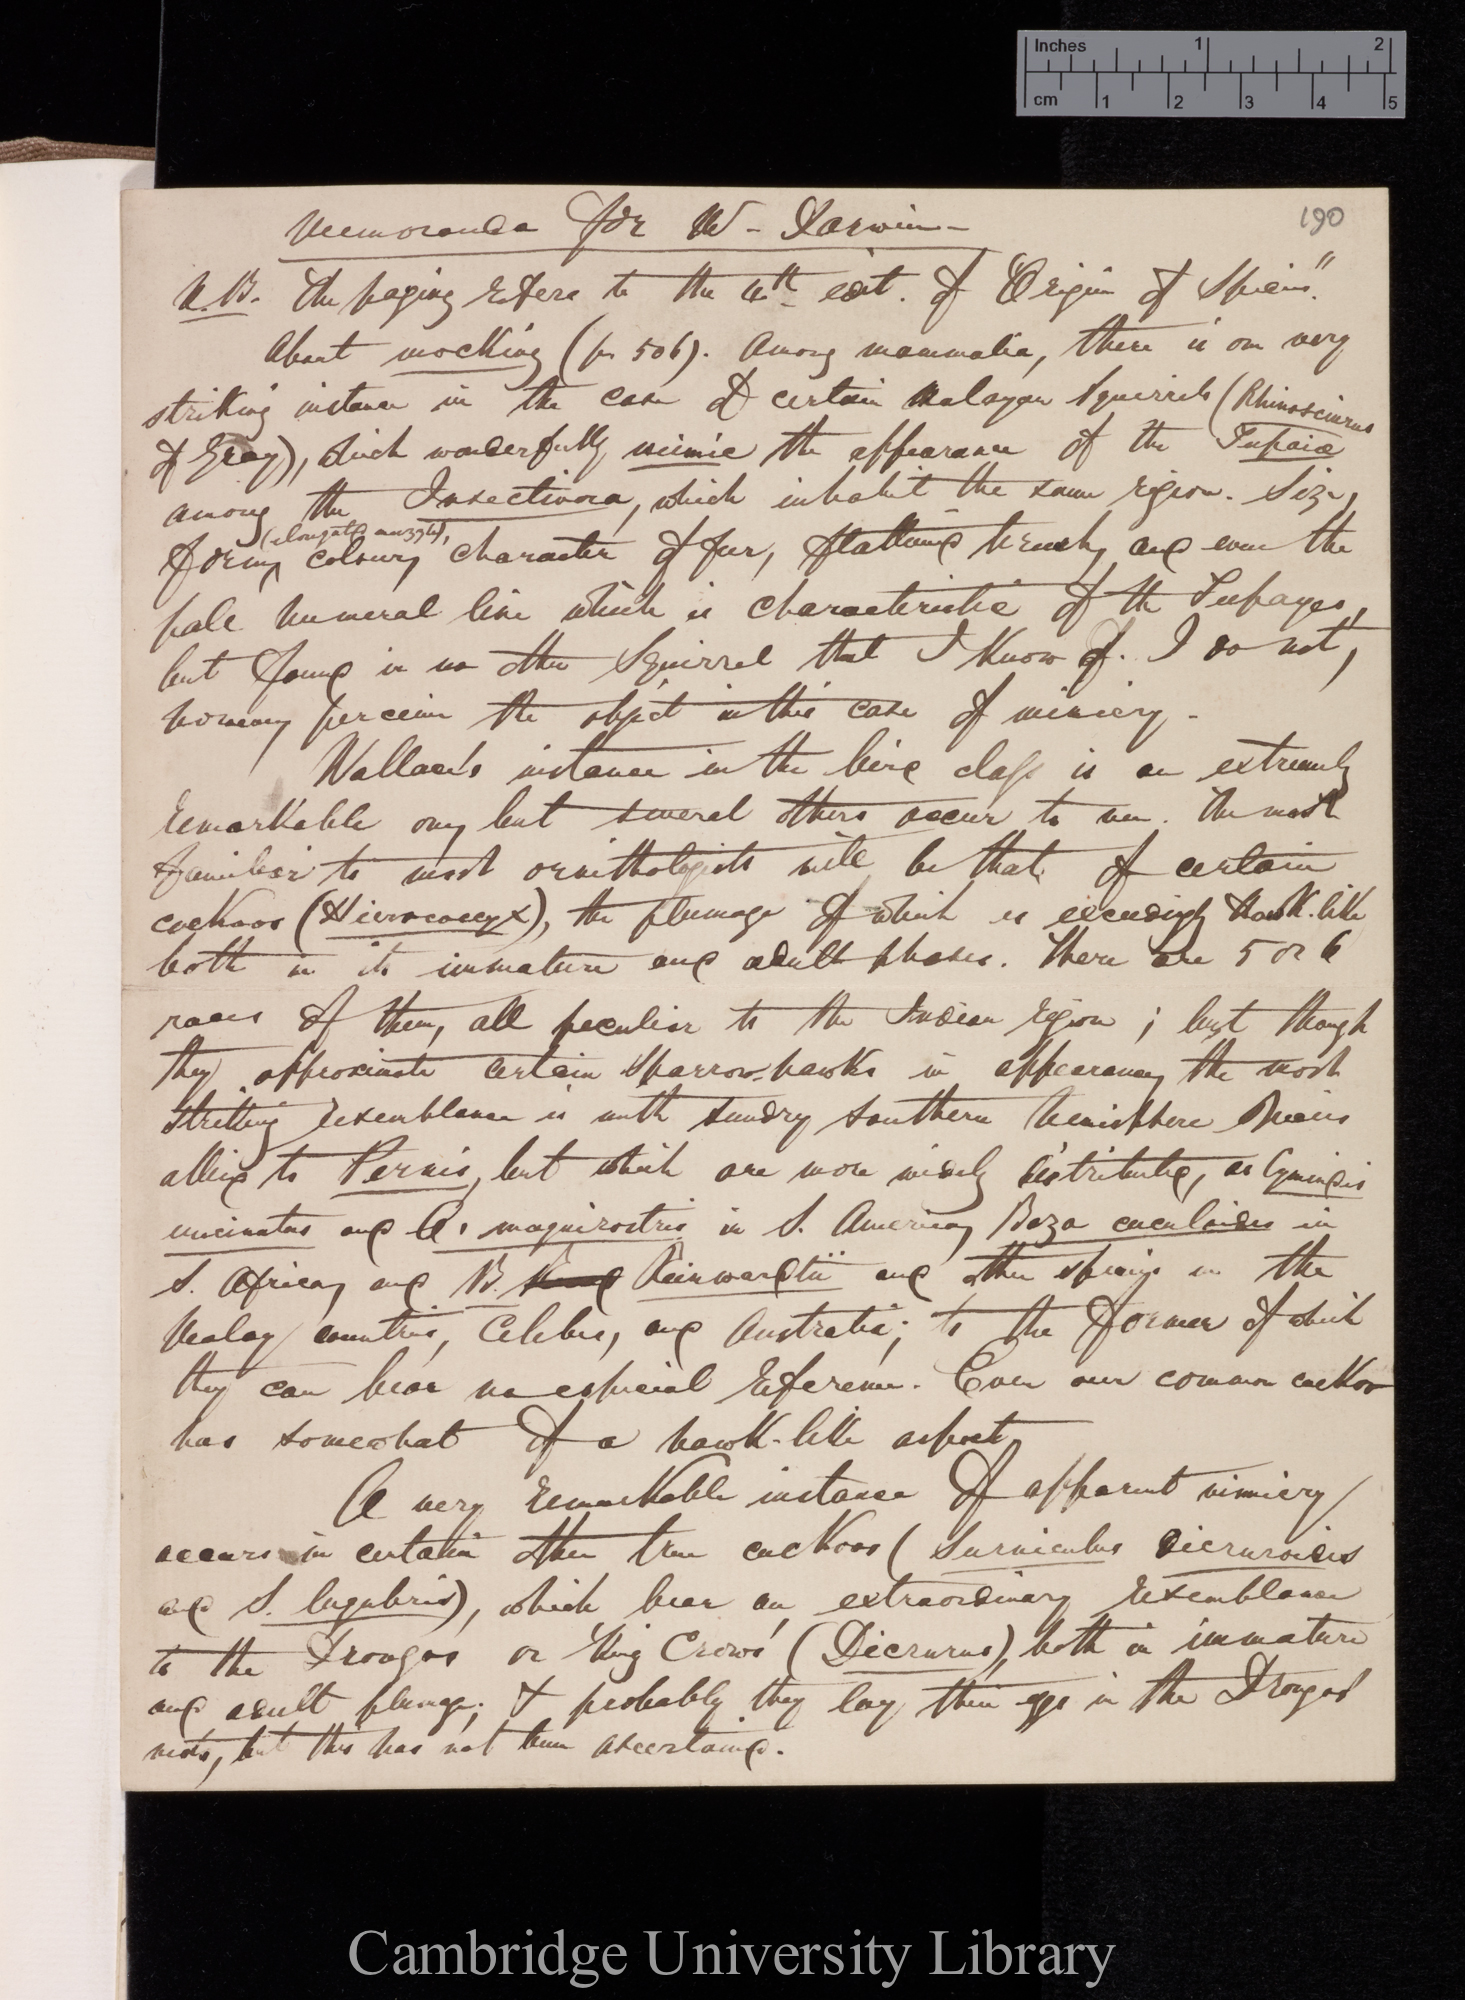 Inches 1 2
cm 1 2 3 4 5
190
Memoranda for Mr. Darwin—
N.B. The paging refers to the 4th. edit. of "Origin of Species."
About mocking (p 506). Among mammalia, there is one very
striking instance in the case of certain Malayan Squirrels (Rhinosciurus
of Gray), which wonderfully mimic the appearance of the Tupaiæ
among the Insectivora, which inhabit the same region. Size,
(elongated muzzle),
form, colour, character of fur, flattened brush, and even the
pale humeral line which is characteristic of the Tupayes,
but found in no other Squirrel that I know of. I do not,
however, perceive the object in this case of mimicry.
Wallace's instance in the bird class is an extremely
remarkable one, but several others occur to me. The most
familiar to most ornithologists will be that of certain
cuckoos (Hierococcyx), the plumage of which is exceedingly hawk-like
both in its immature and adult phases. There are 5 or 6
races of them, all peculiar to the Indian region; but though
they approximate certain sparrow-hawks in appearance, the most
striking resemblance is with sundry southern hemisphere species
allied to Pernis, but which are more widely distributed, as Cymindis
uncinatus and C. magnirostris in S. America, Baza cuculoides in
S. Africa, and B. Reinwardtii and other species in the
Malay countries, Celebes, and Australia; to the former of which
they can bear no especial reference. Even our common cuckoo
has somewhat of a hawk-like aspect.
A very remarkable instance of apparent mimicry
occurs in certain other true cuckoos (Surniculus dicruroides
and S. lugubris), which bear an extraordinary resemblance
to the Drongos or 'King Crows' (Dicrurus), both in immature
and adult plumage; & probably they lay their eggs in the Drongos'
nests, but this has not been ascertained.
Cambridge University Library